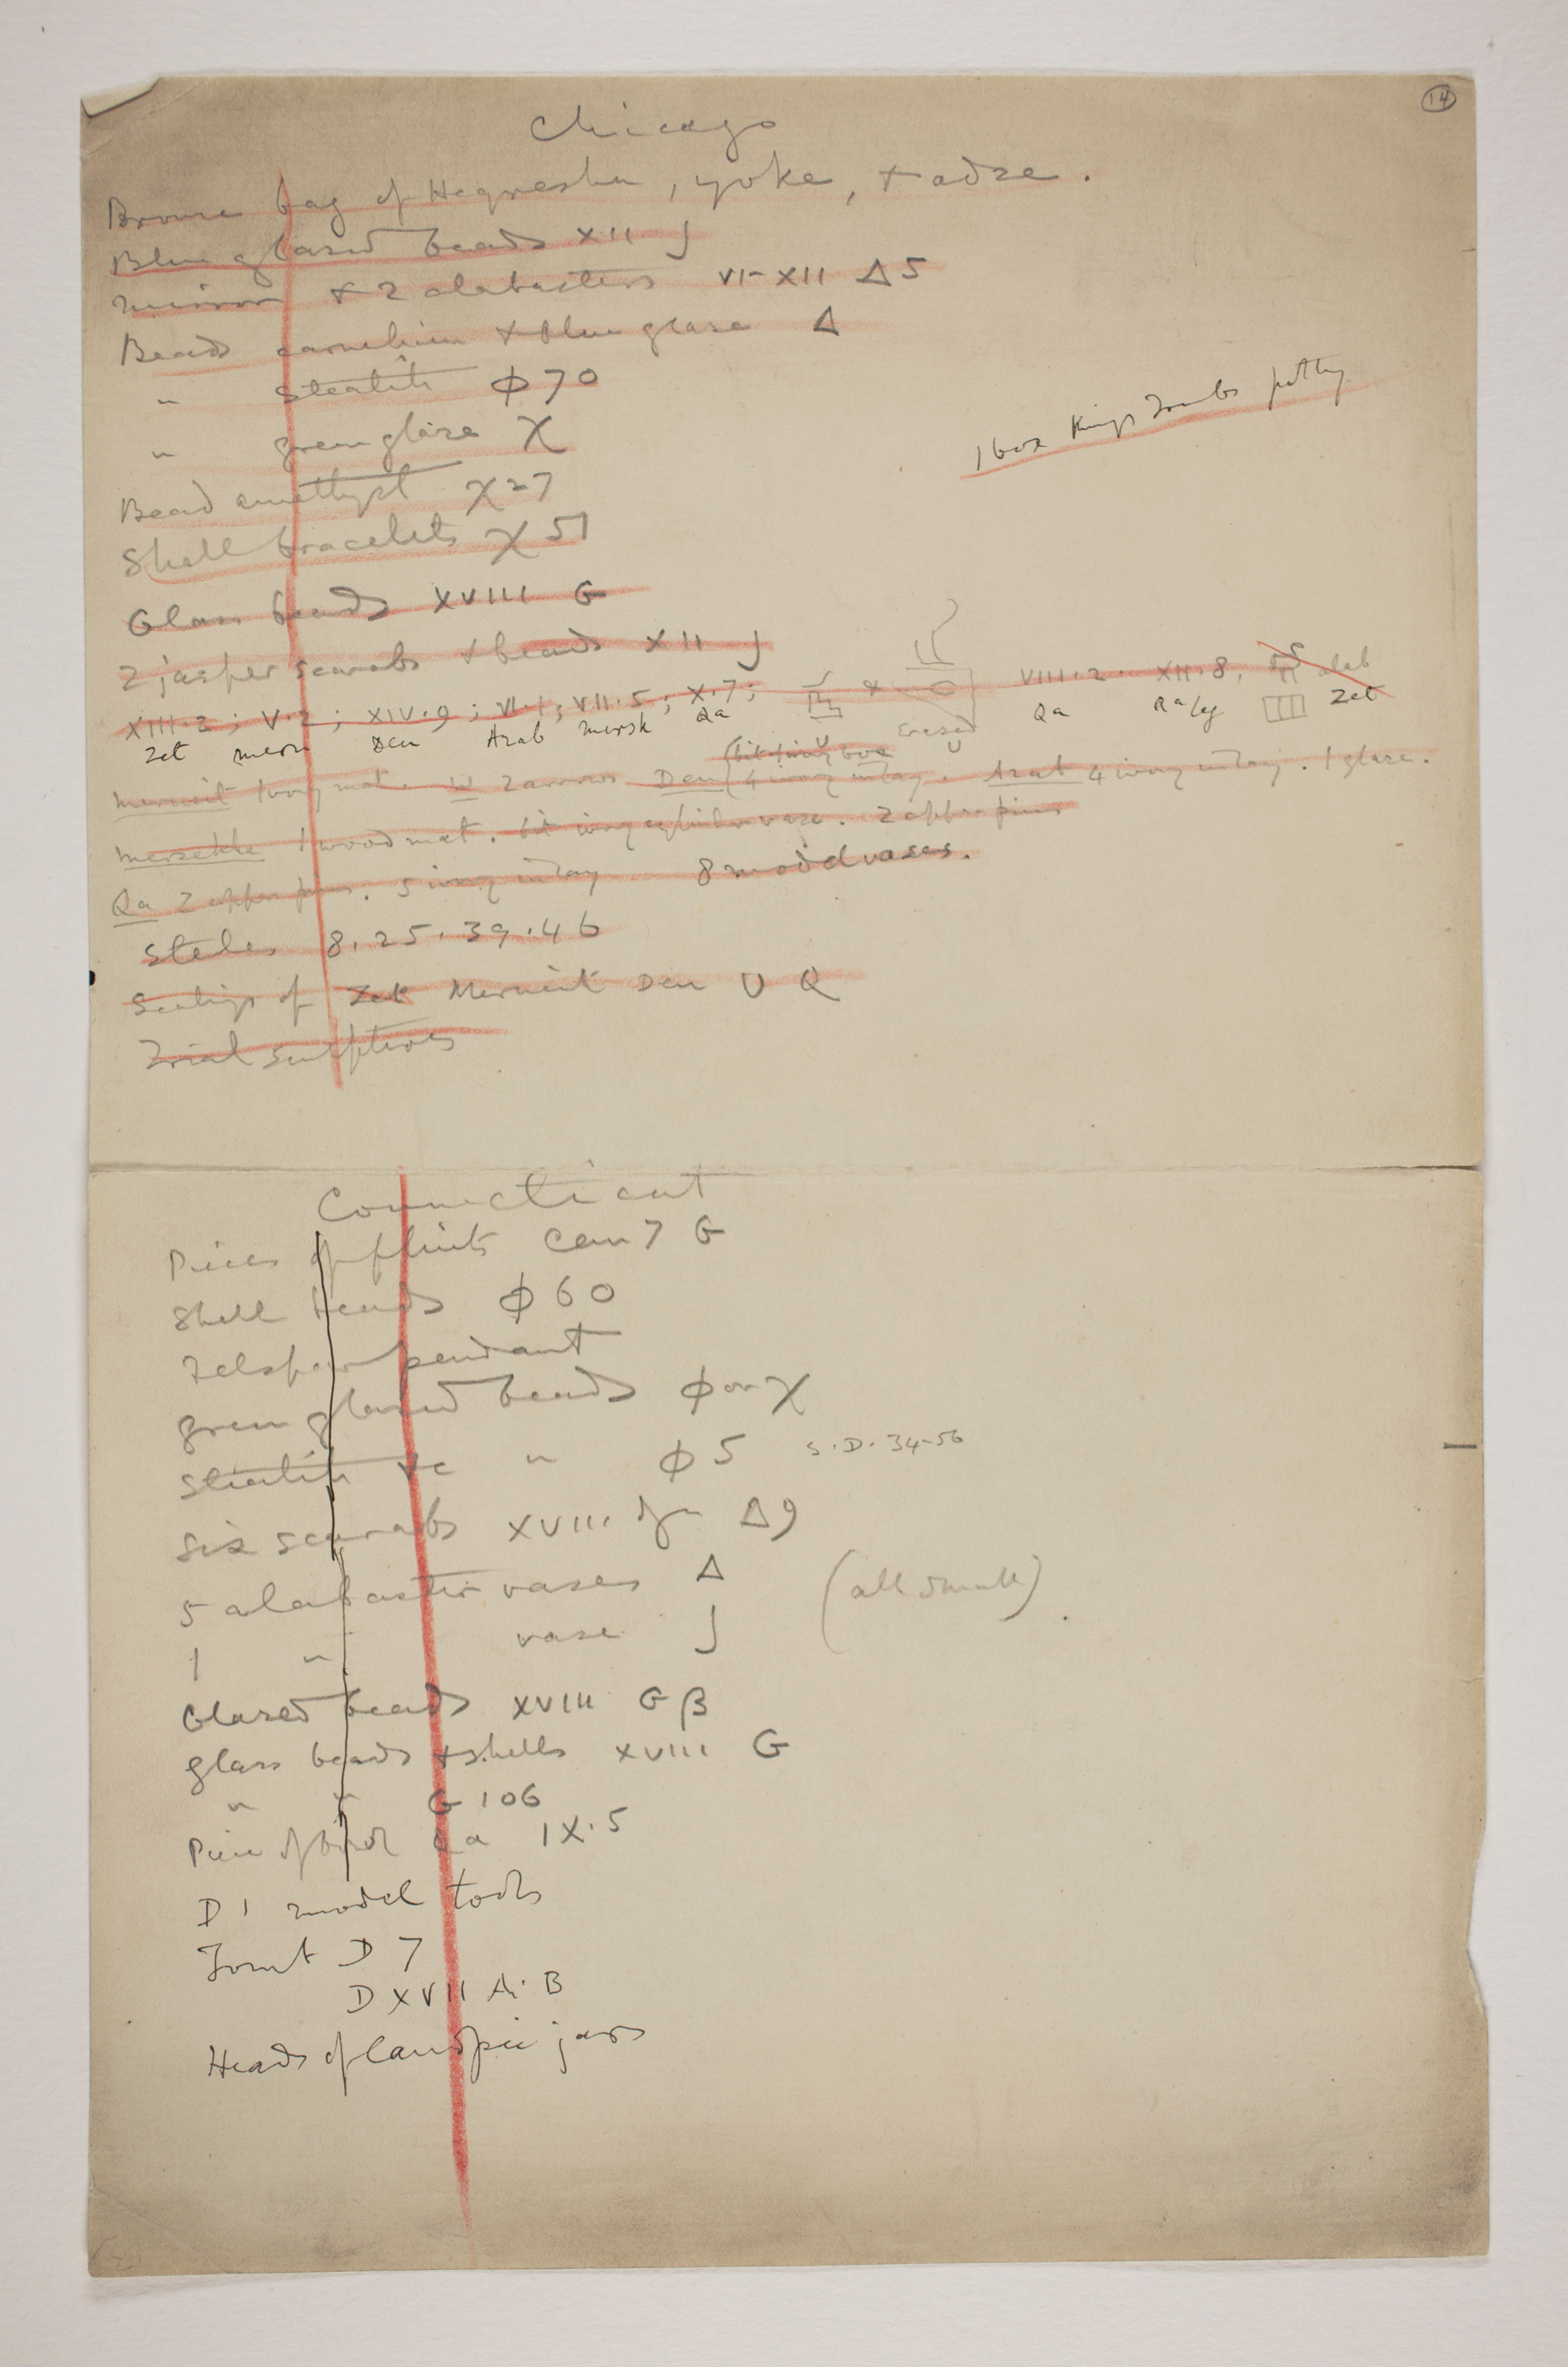 14
Chicago
Bronze bag of Heqreshu, yoke, + adze.
Blue glazed beads XII J
Mirror + 2 alabasters VI-XII Δ 5
Beads carnelian + blue glaze Δ
" Steatite ϕ 70
" green glaze χ
1 box Kings Tombs pottery
Bead amethyst χ 27
Shell bracelets χ 51
Glass beads XVIII G
2 jasper scarabs + beads XII J
XIII.2; V.2; XIV.9; VI.1; VII.5; X.7; & VIII.2. XII.8. alab
Zet Mern Den Azab Mersk Qa Erased Qa Qa Zet
Merneit 1 ivory mat. W 2 arrows Den (bit ivory box 4 ivory inlay. Azab 4 ivory inlay. 1 glaze.
Mersekha 1 wood mat. bit ivory cylinder vase. 2 copper pins
Qa 2 copper pins. 5 ivory inlay 8 model vases.
Steles 8.25.39.46
Sealings of Zet Merneit Den U Q
Trial sculptures
Connecticut
Pieces of flints Cem 7 G
Shell beads ϕ 60
Felspar pendant
Green glazed beads ϕ or χ
Steatite &c " ϕ 5 S.D. 34-56
Six scarabs XVIII dyn Δ 9
5 alabaster vases Δ (all small)
1 " vase J
Glazed beads XVIII G β
glass beads + shells XVIII G
" " G 106
Piece of bowl Qa IX.5
D 1 model tools
Tomb D 7
D XVII A. B
Heads of Canopic jars